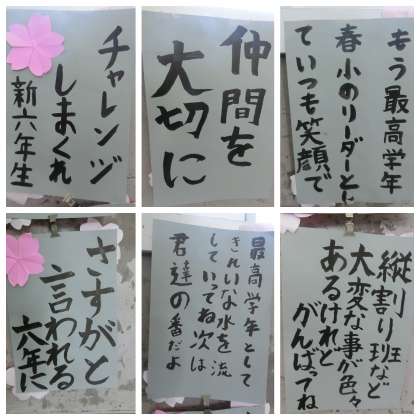 チャレンジ
しまくれ
新六年生
仲間を
大切に
もう最高学年
春小のリーダーとし
ていつも笑顔で
さすがと
言われる
六年に
最高学年として
きれいな水を流
していってね次は
君達の番だよ
縦割り班など
大変な事が色々
あるけれど
がんばってね